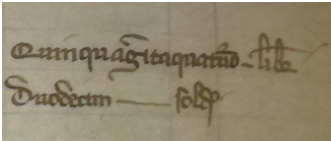 Quinquagĩtaquatuõ – libȝ
Duodecim — solidꝭ